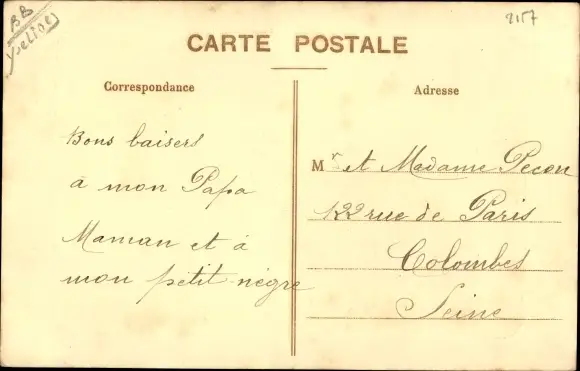 BB
2157
CARTE POSTALE
Correspondance
Bons baisers
à mon Papa
Maman et à
mon petit nègre
Adresse
Mr et Madame Pecon
122 rue de Paris
Colombes
Seine